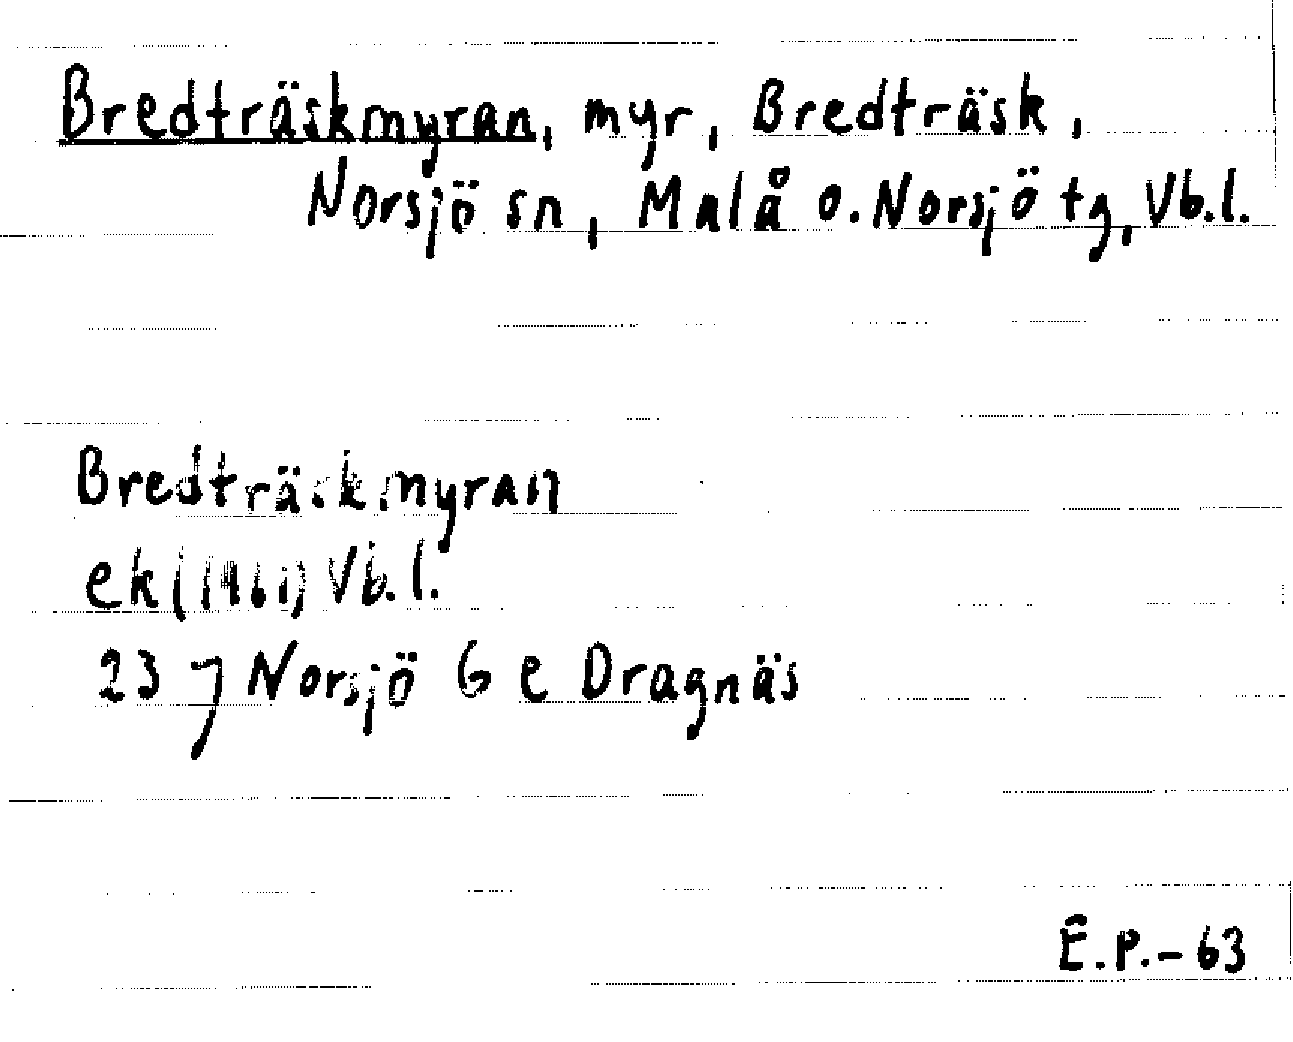 Bredträskmyran, myr, Bredträsk,
Norsjö sn, Malå o. Norsjö tg, Vb.l.
Bredträskmyran
ek (1961) Vb.l.
23 J Norsjö 6 e Dragnäs
E.P.-63